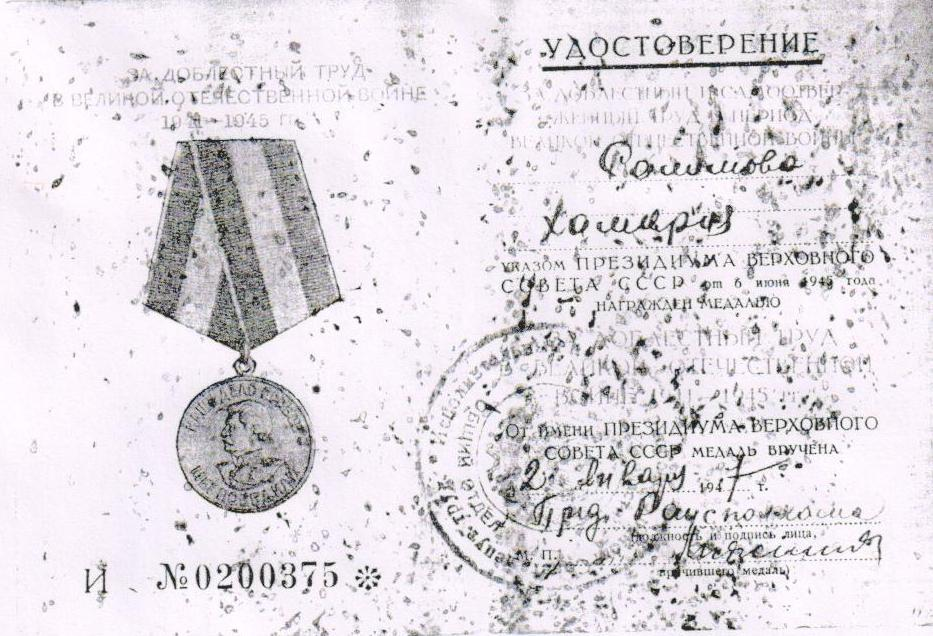 ЗА ДОБЛЕСТНЫЙ ТРУД
В ВЕЛИКОЙ ОТЕЧЕСТВЕННОЙ ВОЙНЕ
1941-1945 гг.
НАШЕ ДЕЛО ПРАВОЕ
МЫ ПОБЕДИЛИ
И №0200375 *
УДОСТОВЕРЕНИЕ
ЗА ДОБЛЕСТНЫЙ И САМООТВЕР
ЖЕННЫЙ ТРУД В ПЕРИОД
ВЕЛИКОЙ ОТЕЧЕСТВЕННОЙ ВОЙНЫ
УКАЗОМ ПРЕЗИДИУМА ВЕРХОВНОГО
СОВЕТА СССР от 6 июня 1945 года
НАГРАЖДЕН МЕДАЛЬЮ
ДОБЛЕСТНЫЙ ТРУД
В ВЕЛИКОЙ ОТЕЧЕСТВЕННОЙ
ВОЙНЕ 1941-1945 гг.
ОТ ИМЕНИ ПРЕЗИДИУМА ВЕРХОВНОГО
СОВЕТА СССР МЕДАЛЬ ВРУЧЕНА
2 января 1947 г.
Пред. Райсполкома
(должность и подпись лица,
М. П.
вручившего медаль)